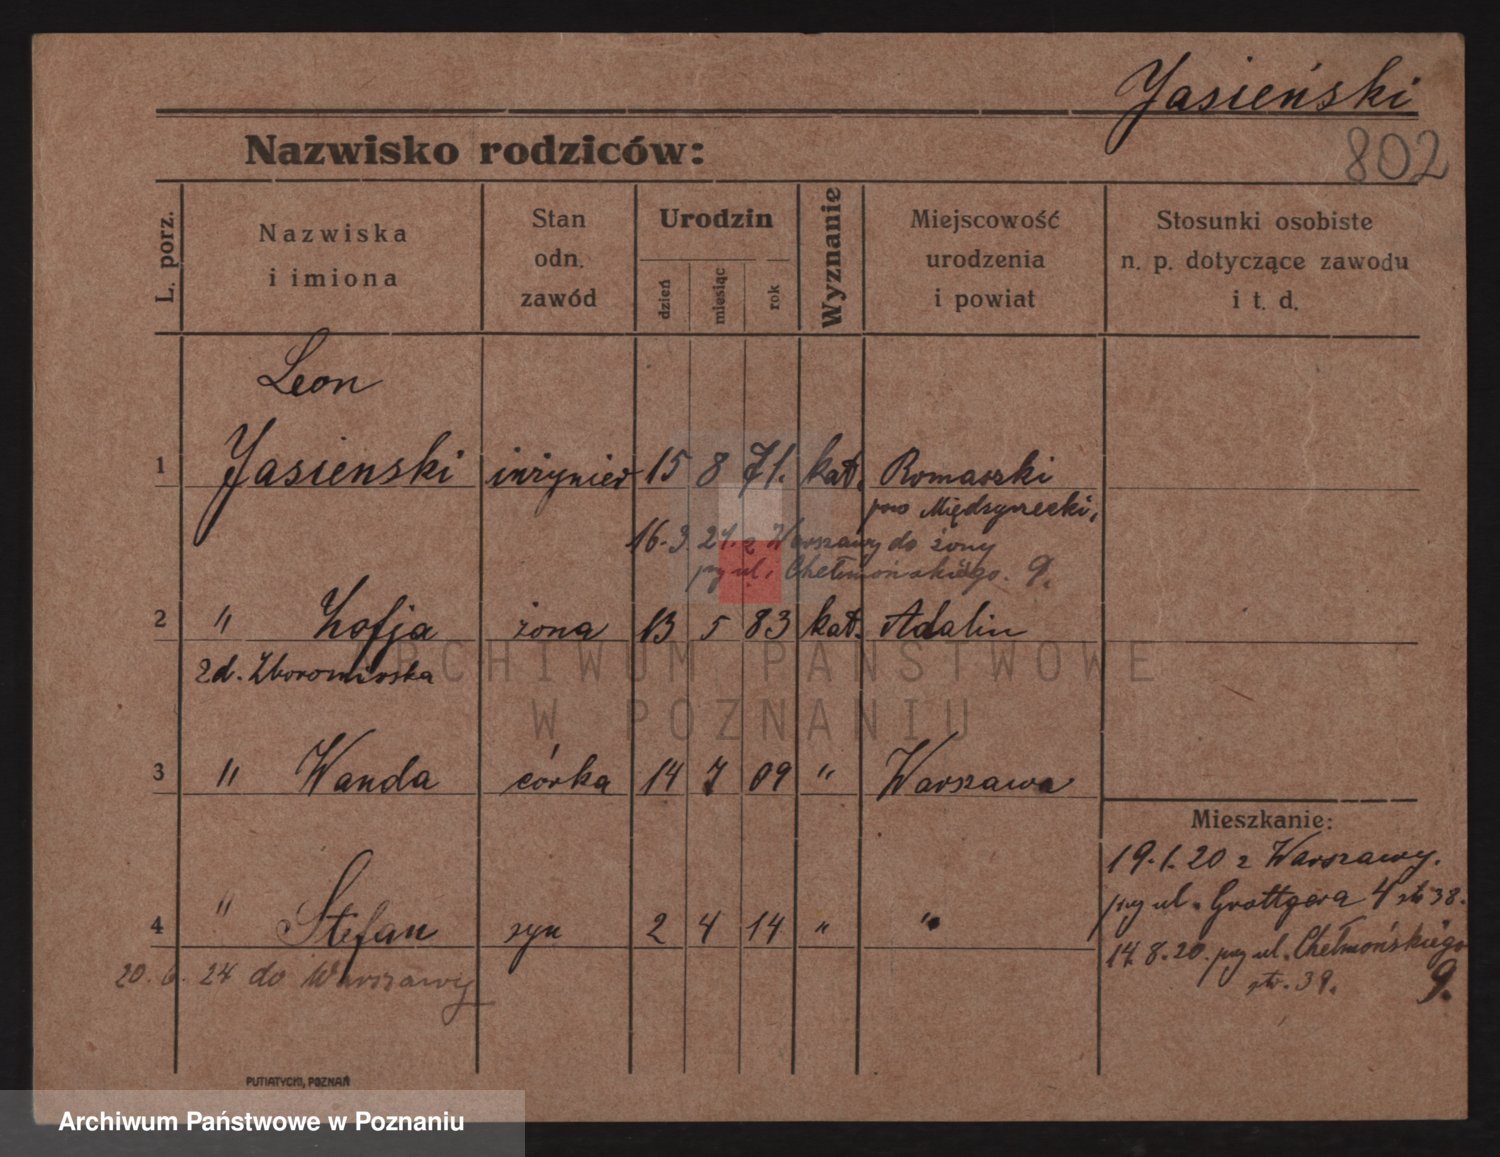 Jasieński
802
Nazwisko rodziców:
L. porz.
Nazwiska
i imiona
Stan
odn.
zawód
Urodzin
dzień
miesiąc
rok
Wyznanie
Miejscowość
urodzenia
i powiat
Stosunki osobiste
n. p. dotyczące zawodu
i t. d.
Leon
1 Jasienski inżynier 15 8 71. kat. Romaszki
pow Międzyrzecki,
16.3. 24. z Warszawy do żony
przy ul. Chełmońskiego. 9.
2 " Zofja żona 13 5 83 kat. Adalin
zd.
3 " Wanda córka 14 7 09 " Warszawa
4 " Stefan syn 2 4 14 " "
20. 6. 24 do Warszawy
Mieszkanie:
19.1.20 z Warszawy.
przy ul. Grottgera 4 str 38.
14.8.20. przy ul. Chełmońskiego
str. 39. 9.
ARCHIWUM PAŃSTWOWE
W POZNANIU
PUTIATYCKI, POZNAŃ
Archiwum Państwowe w Poznaniu